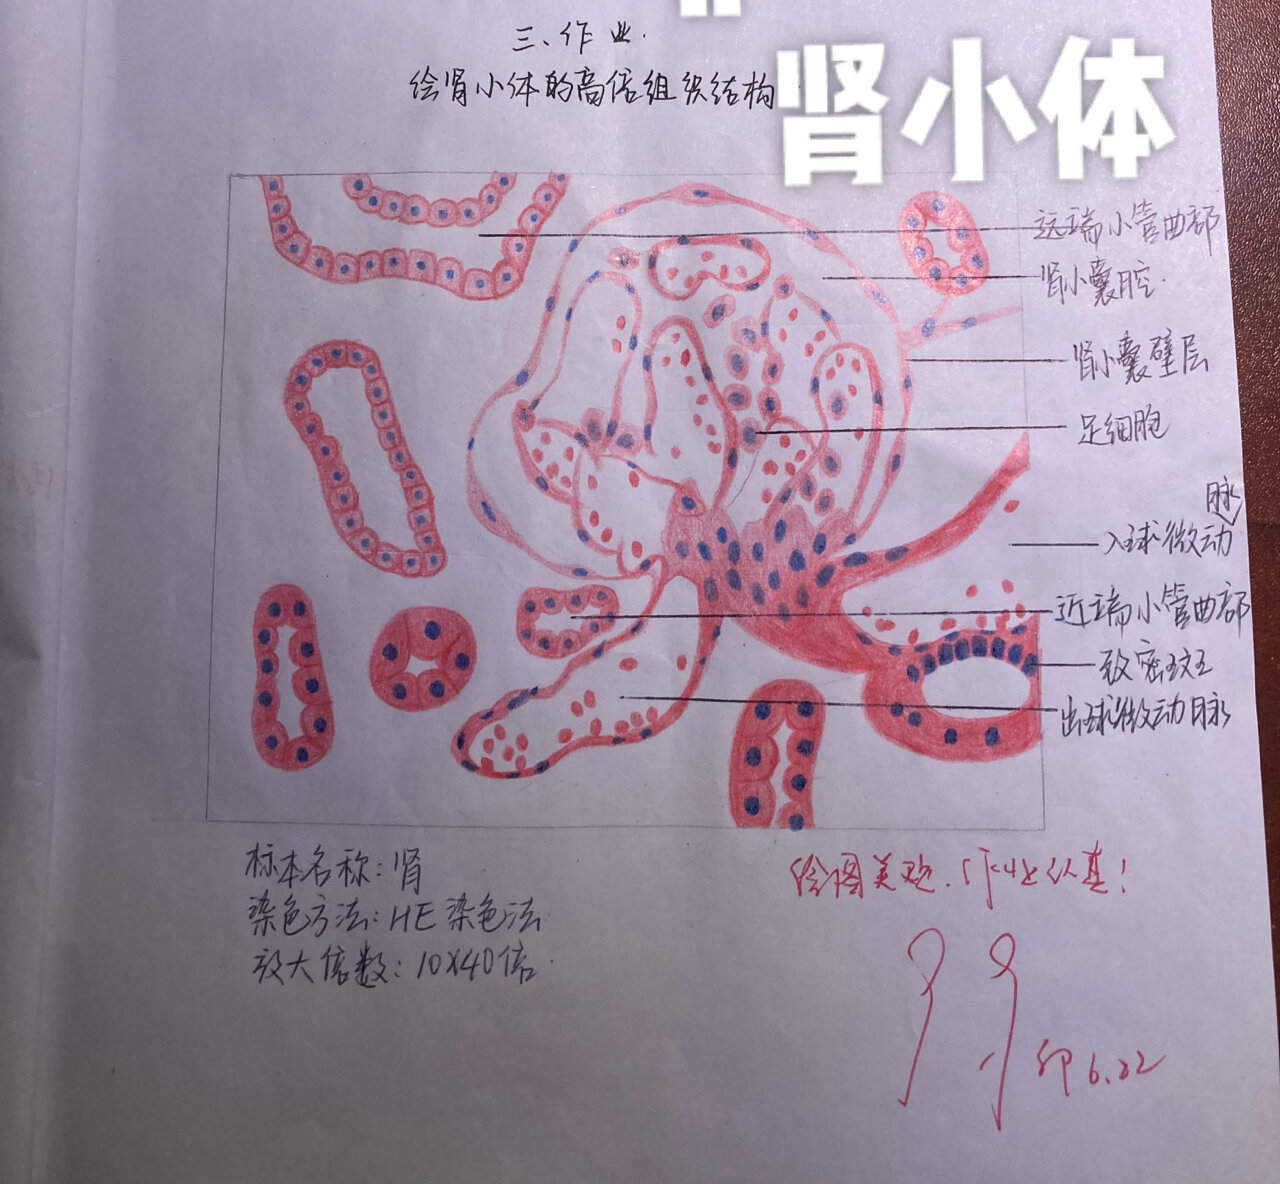 三、作业.
绘肾小体的高倍组织结构
肾小体
远端小管曲部
肾小囊腔.
肾小囊壁层
足细胞
入球微动脉
近端小管曲部
致密斑
出球微动脉
标本名称：肾
染色方法：HE染色法.
放大倍数：10X40倍.
绘图美观.作业认真！
6.22